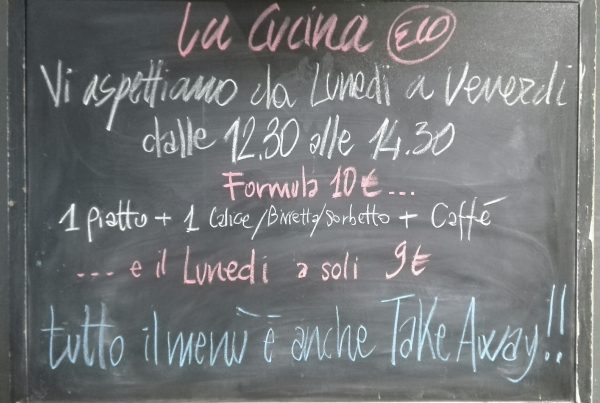 La Cucina ECO
Vi aspettiamo da Lunedì a Venerdì
dalle 12.30 alle 14.30
Formula 10€...
1 piatto + 1 Calice/Birretta/Sorbetto + Caffé
.... e il Lunedì a soli 9€
tutto il menù è anche Take Away!!